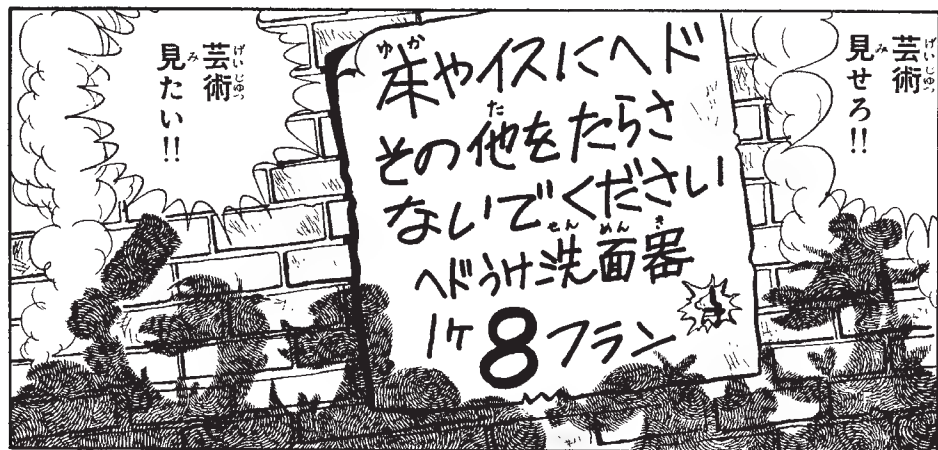 芸術
見せろ!!
床やイスにヘド
その他をたらさ
ないでください
ヘドうけ洗面器
1ケ8フラン
芸術
見たい!!